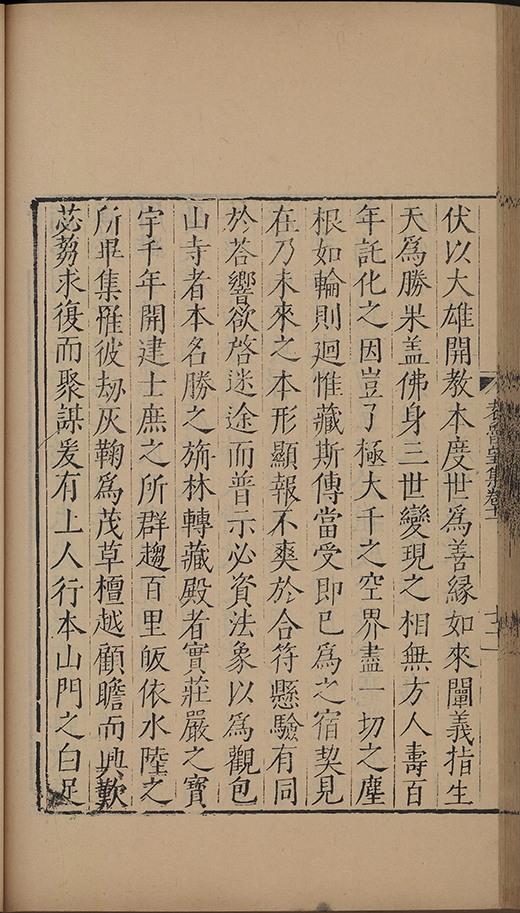 袁魯望集卷十一 十二
伏以大雄開教本度世爲善緣如來闡義指生
天爲勝果盖佛身三世變現之相無方人壽百
年託化之因豈了極大千之空界盡一切之塵
根如輪則廻惟藏斯傳當受即已爲之宿契見
在乃未來之本形顯報不爽於合符懸驗有同
於荅響欲啓迷途而普示必資法象以爲觀包
山寺者本名勝之旃林轉藏殿者實莊嚴之寶
宇千年開建士庶之所群趨百里皈依水陸之
所畢集罹彼刼灰鞠爲茂草檀越顧瞻而興歎
苾芻求復而聚謀爰有上人行本山門之白足